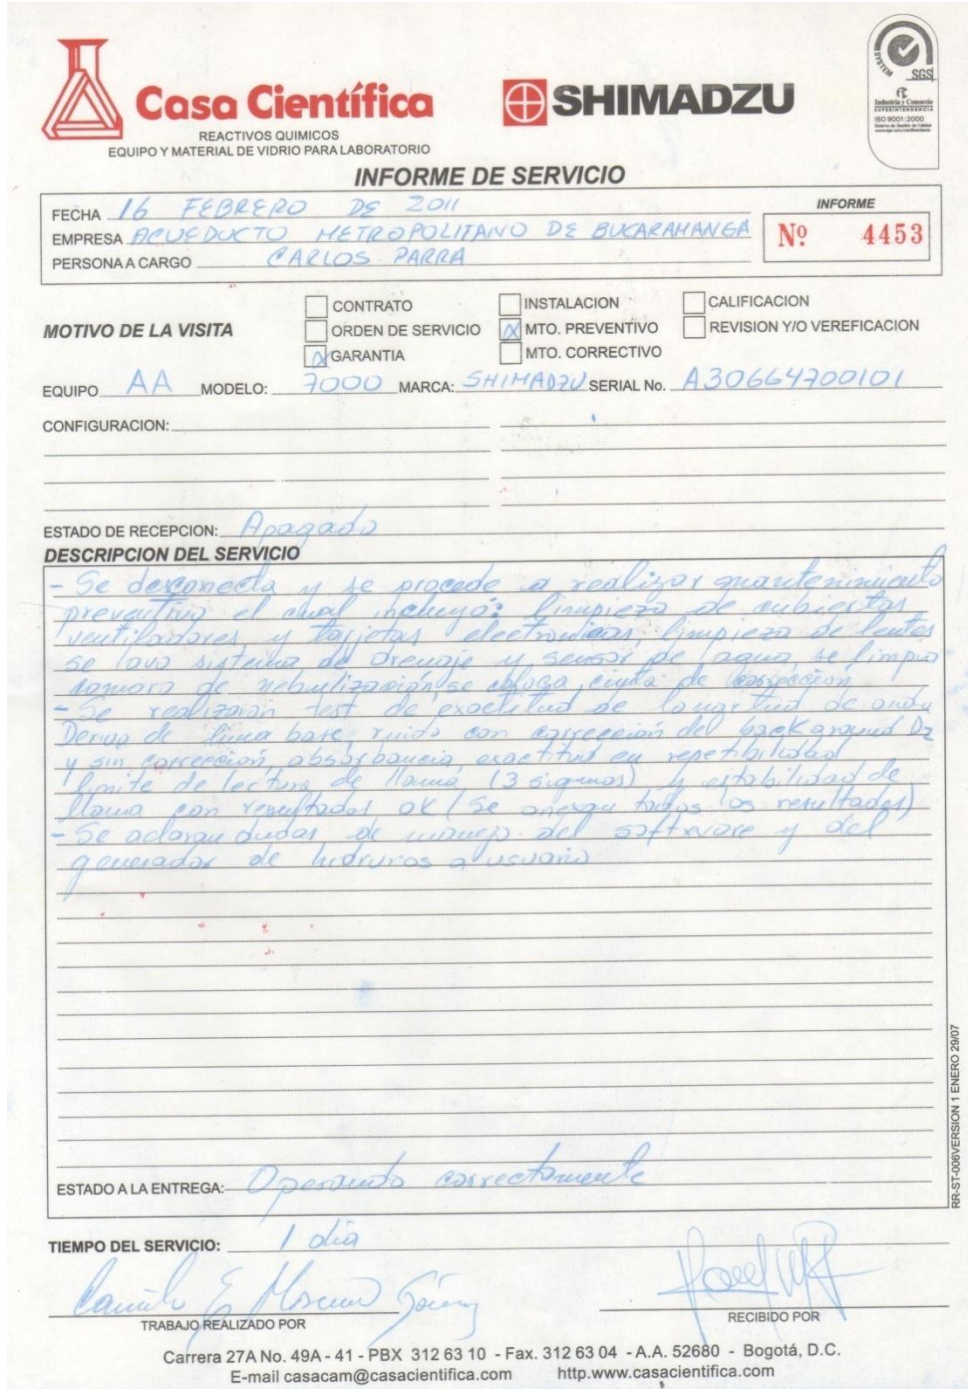 Casa Científica
REACTIVOS QUIMICOS
EQUIPO Y MATERIAL DE VIDRIO PARA LABORATORIO
SHIMADZU
SYSTEM
SGS
Industria y Comercio
SUPERINTENDENCIA
ISO 9001:2000
INFORME DE SERVICIO
FECHA 16 FEBRERO DE 2011
EMPRESA ACUEDUCTO METROPOLITANO DE BUCARAMANGA
PERSONA A CARGO CARLOS PARRA
INFORME
Nº 4453
MOTIVO DE LA VISITA
CONTRATO
ORDEN DE SERVICIO
X GARANTIA
INSTALACION
X MTO. PREVENTIVO
MTO. CORRECTIVO
CALIFICACION
REVISION Y/O VEREFICACION
EQUIPO AA MODELO: 7000 MARCA: SHIMADZU SERIAL No. A30664700101
CONFIGURACION:
ESTADO DE RECEPCION: Apagado
DESCRIPCION DEL SERVICIO
- Se desconecta y se procede a realizar mantenimiento
preventivo el cual incluyó: limpieza de cubiertas
ventiladores y tarjetas electronicas, limpieza de lentes
se lavo sistema de drenaje y sensor de agua, se limpio
camara de nebulización, se coloca cinta de corrección
- Se realizaron test de exactitud de longitud de onda
Deriva de linea base, ruido con corrección del background D2
y sin corrección, absorbancia, exactitud en repetibilidad
limite de lectura de llama (3 sigmas) y estabilidad de
llama con resultados OK (Se anexan todos los resultados)
- Se aclaran dudas de manejo del software y del
generador de hidruros a usuario
ESTADO A LA ENTREGA: Operando correctamente
TIEMPO DEL SERVICIO: 1 dia
Camilo E Moreno Gómez
TRABAJO REALIZADO POR
RECIBIDO POR
RR-ST-006VERSION 1 ENERO 29/07
Carrera 27A No. 49A - 41 - PBX 312 63 10 - Fax. 312 63 04 - A.A. 52680 - Bogotá, D.C.
E-mail casacam@casacientifica.com http.www.casacientifica.com